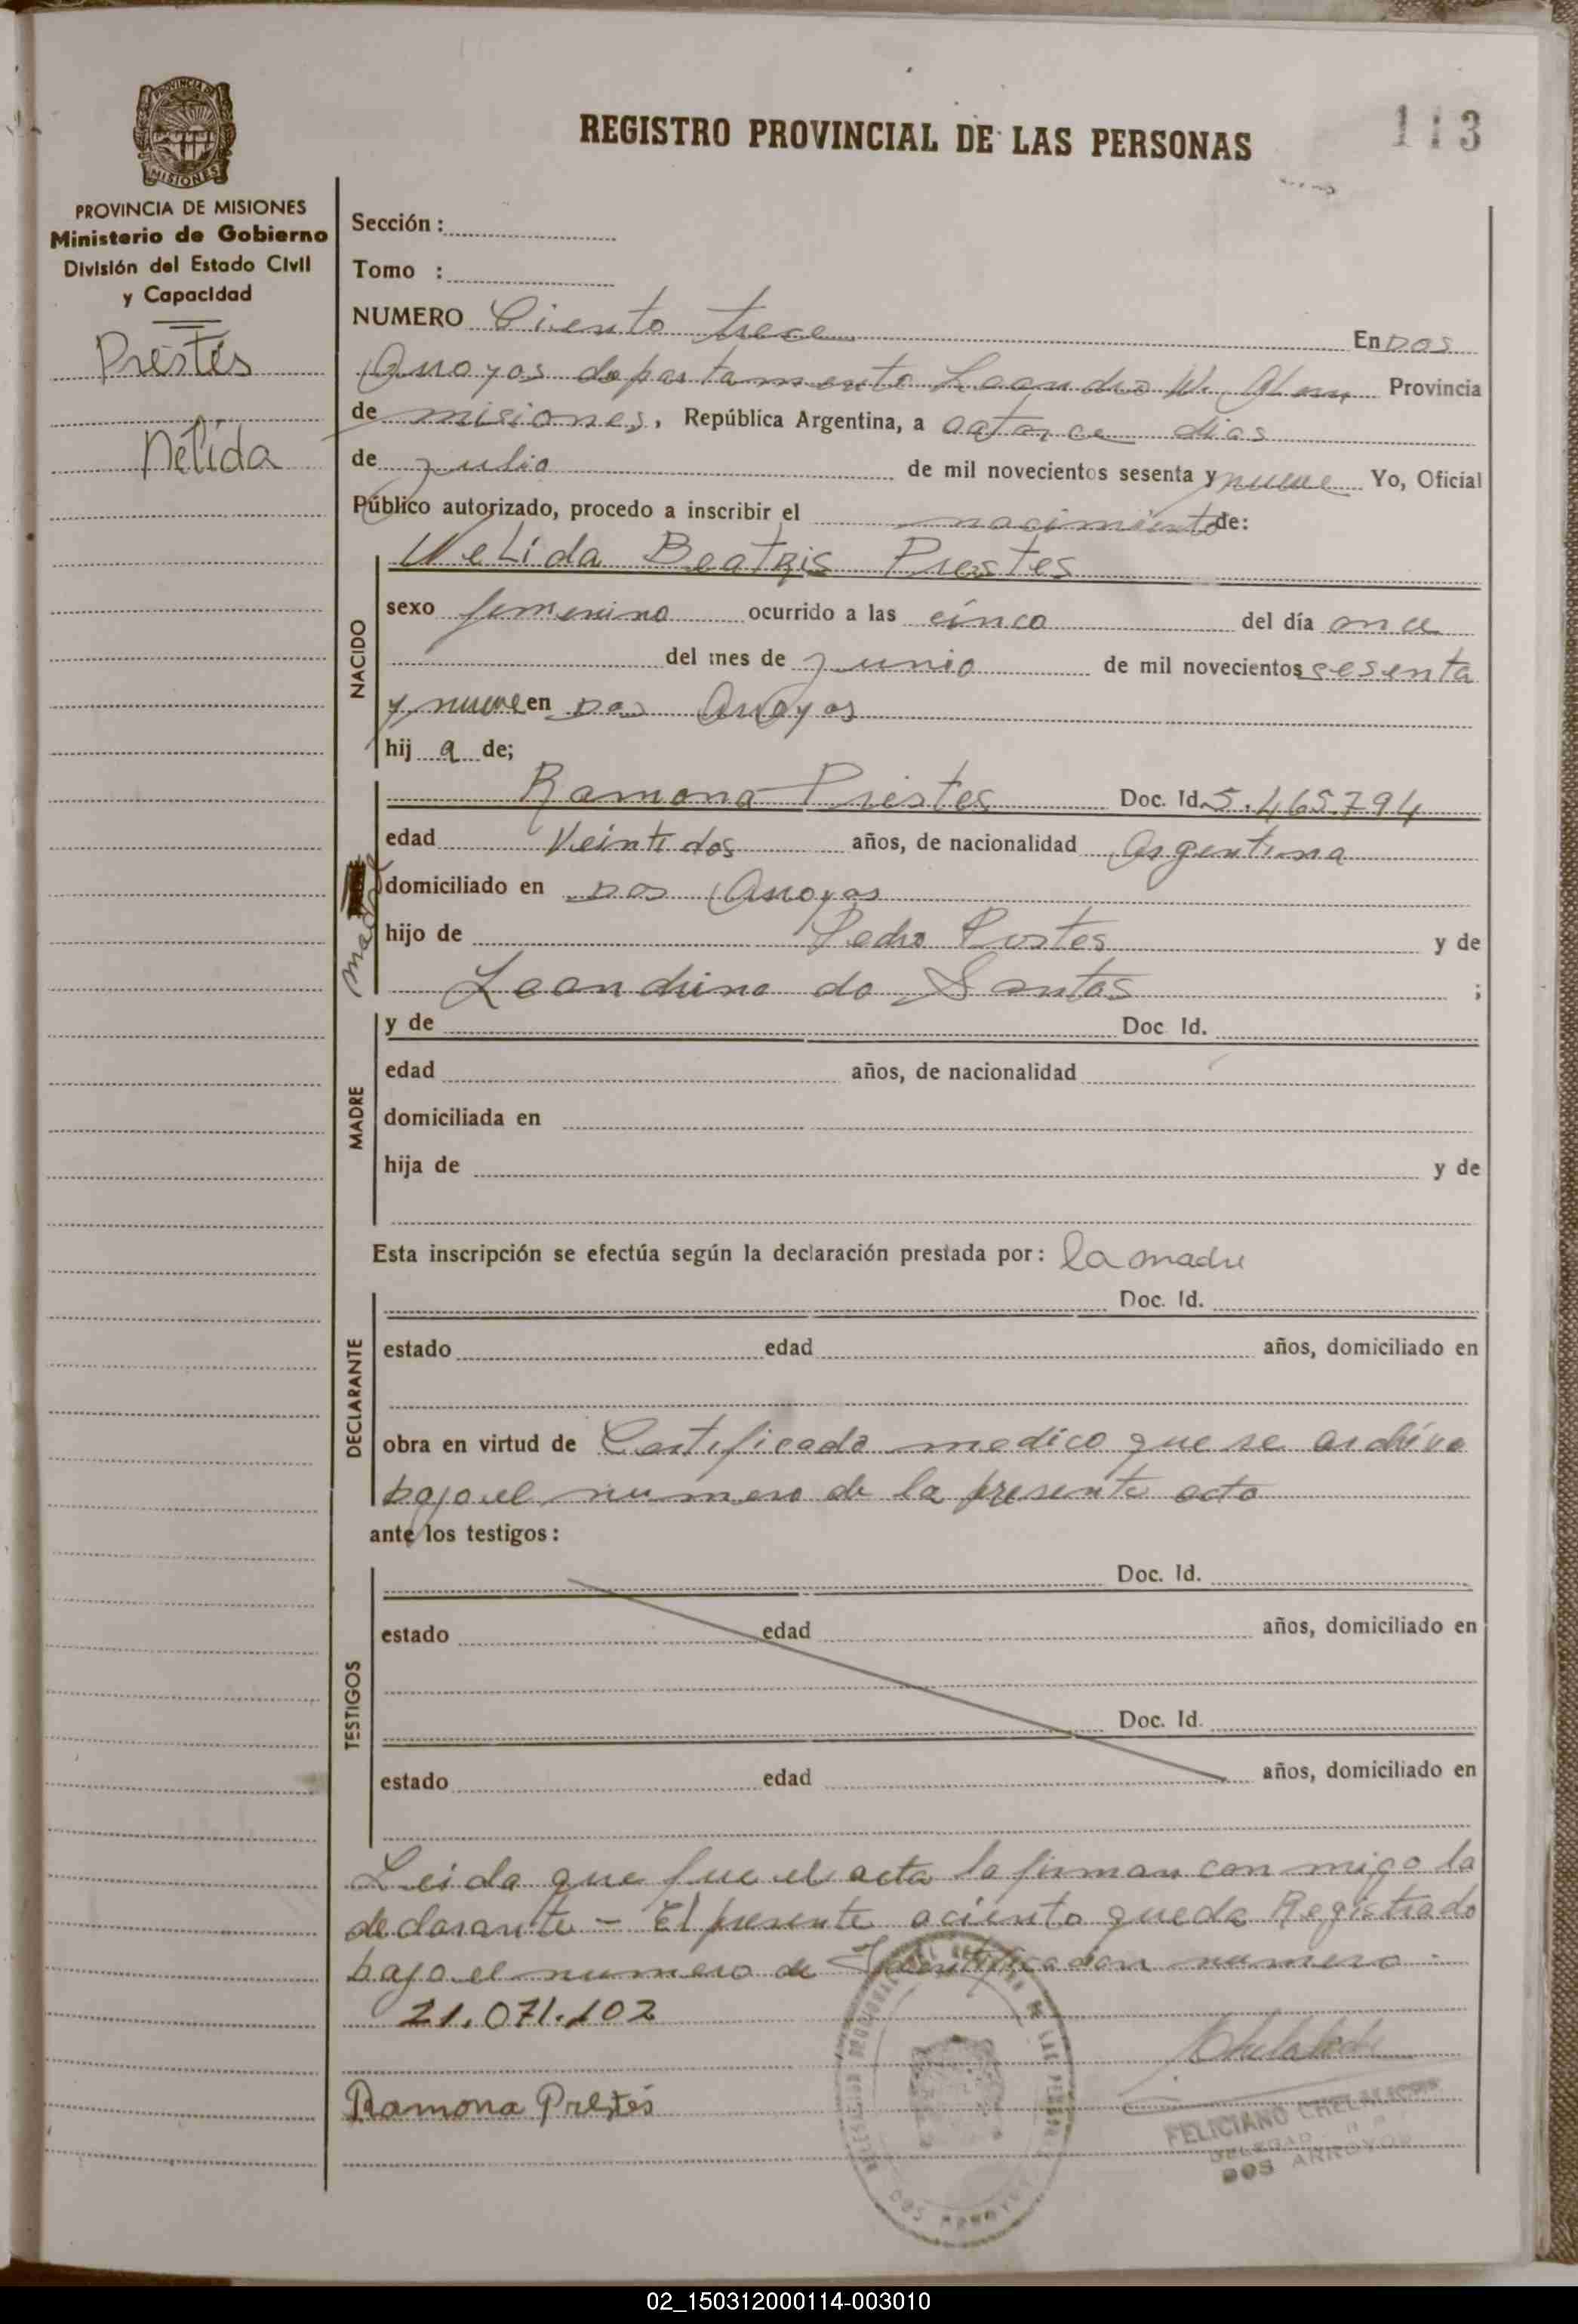 PROVINCIA DE MISIONES
Ministerio de Gobierno
División del Estado Civil
y Capacidad
Prestes
Nelida
REGISTRO PROVINCIAL DE LAS PERSONAS
113
Sección :
Tomo :
NUMERO Ciento trece En Dos
Arroyos departamento Leandro N. Alem Provincia
de misiones, República Argentina, a catorce dias
de julio de mil novecientos sesenta y nueve Yo, Oficial
Público autorizado, procedo a inscribir el nacimiento de:
NACIDO
Nelida Beatris Prestes
sexo femenino ocurrido a las cinco del día once
del mes de junio de mil novecientos sesenta
y nueve en Dos Arroyos
hij a de;
madre
Ramona Prestes Doc. Id. 5.465.794
edad Veintidos años, de nacionalidad Argentina
domiciliado en Dos Arroyos
hijo de Pedro Prestes y de
Leandrina do Santos ;
MADRE
y de Doc Id.
edad años, de nacionalidad
domiciliada en
hija de y de
Esta inscripción se efectúa según la declaración prestada por: la madre
DECLARANTE
Doc. Id.
estado edad años, domiciliado en
obra en virtud de Certificado medico que se archiva
bajo el numero de la presente acta
ante los testigos:
TESTIGOS
Doc. Id.
estado edad años, domiciliado en
Doc. Id.
estado edad años, domiciliado en
Leida que fue el acta la firman con migo la
declarante - El presente aciento queda Registrado
bajo el numero de Identificacion numero :
21.071.102
Ramona Prestes
FELICIANO
DOS ARROYOS
DOS ARROYOS
02_150312000114-003010